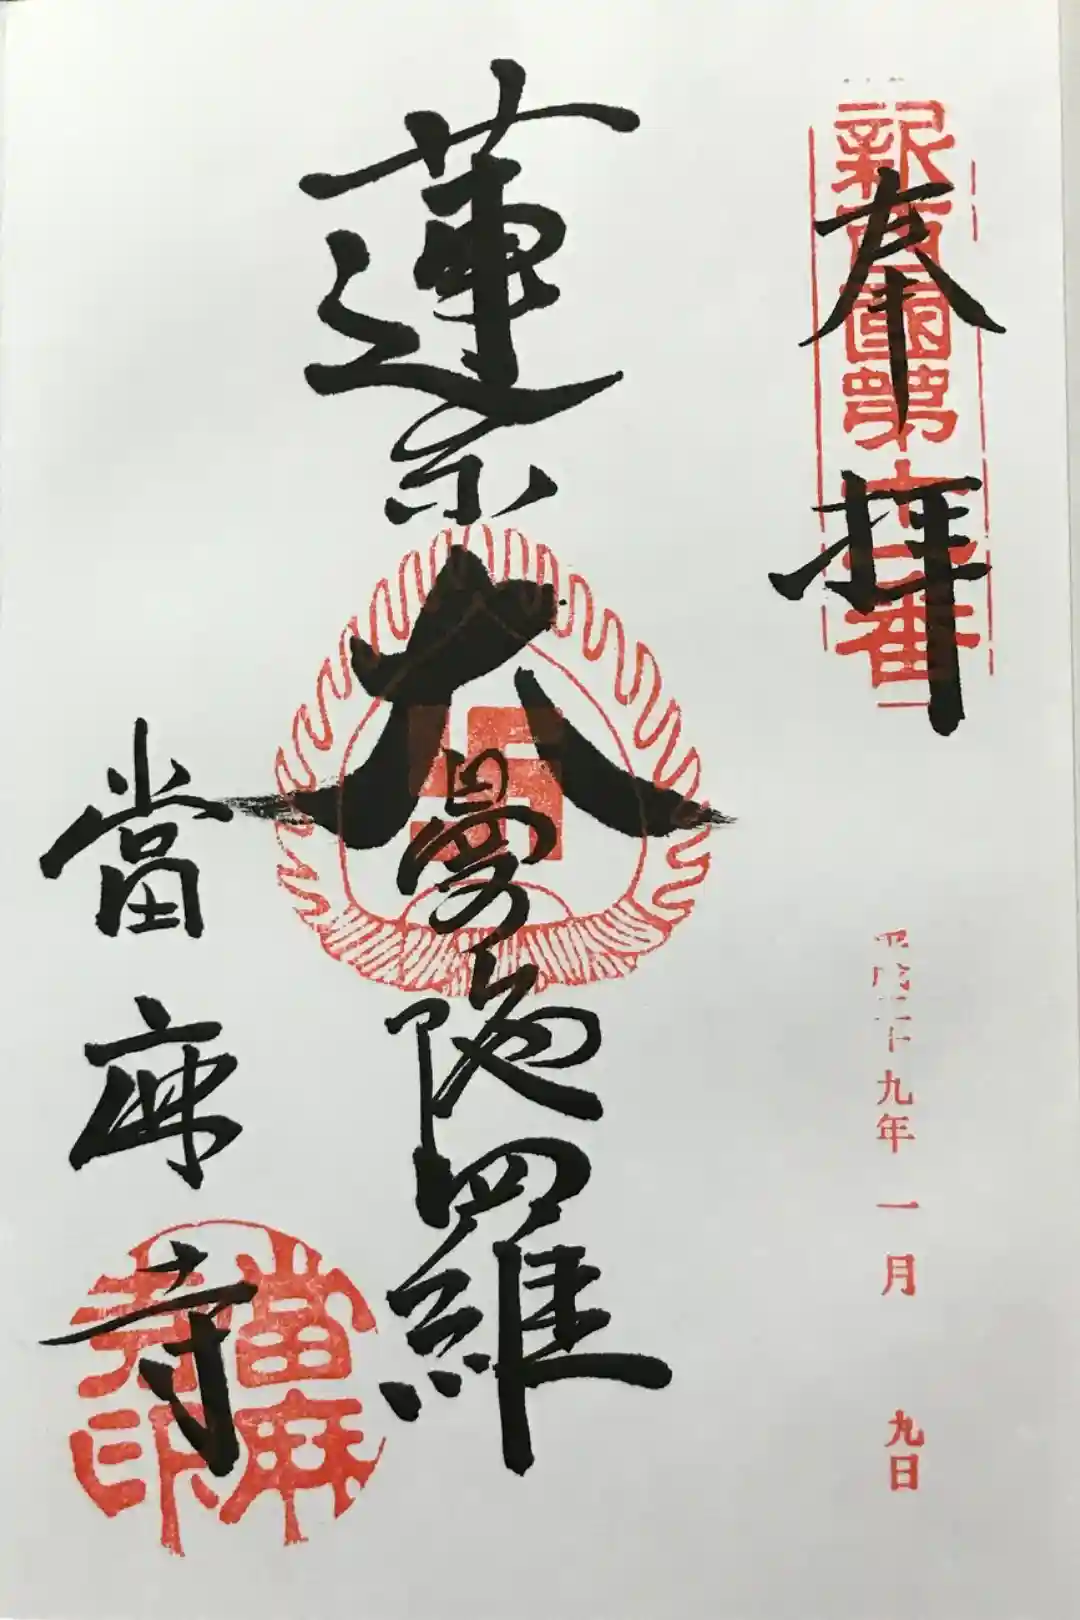 奉拝
新西國第十一番
平成二十九年一月九日
蓮糸大曼陀羅
當麻寺
當麻寺印